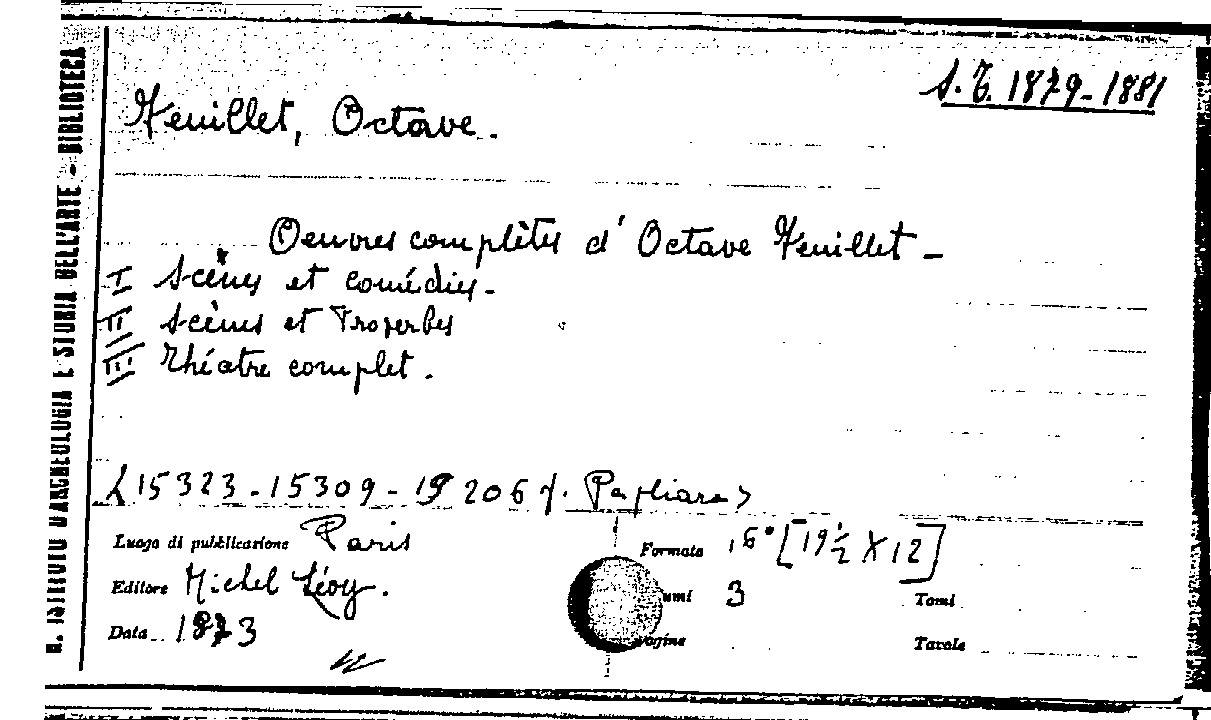 S.T. 1879-1881
Feuillet, Octave.
Oeuvres complètes d'Octave Feuillet -
I Scènes et comédies -
II Scènes et Proverbes
III Théatre complet.
15323 - 15309 - 15206 f. Pagliara >
Luogo di pubblicazione Paris
Formato 16° [19½ X 12]
Editore Michel Lévy.
umi 3
Tomi
Data 1873
agine
Tavole
R. ISTITUTO D'ARCHEOLOGIA E STORIA DELL'ARTE - BIBLIOTECA